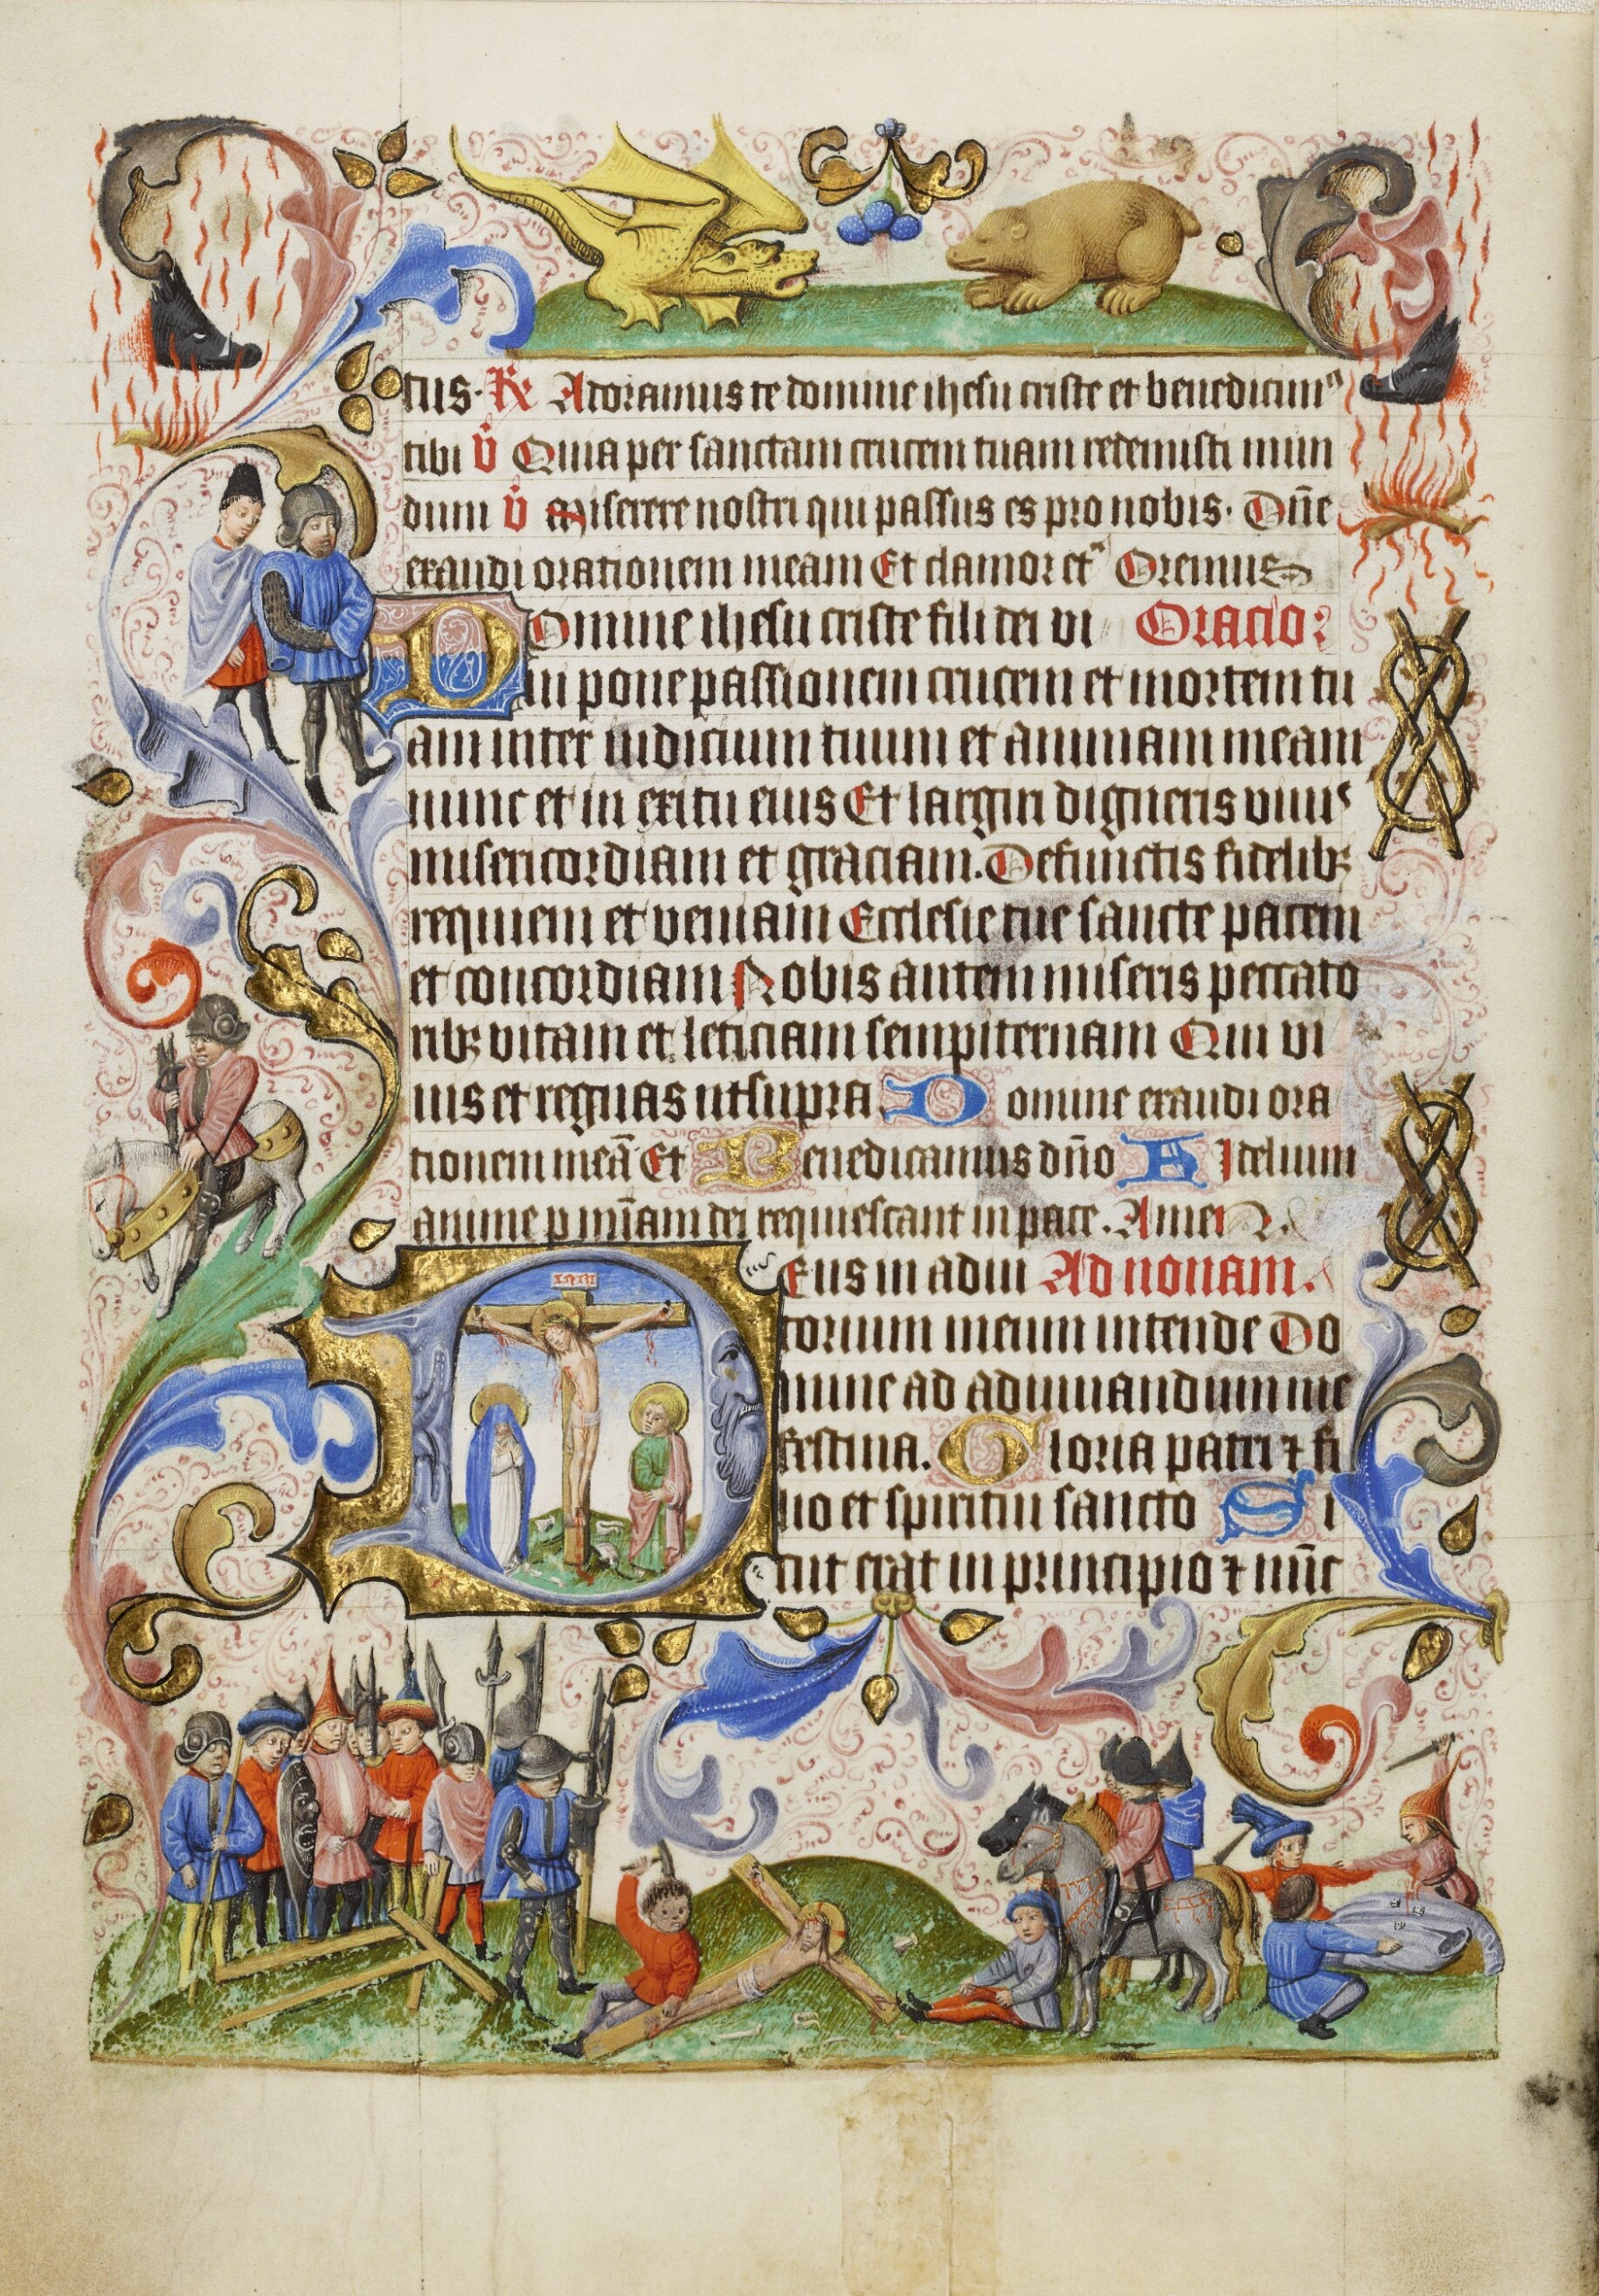 tus. R Adoramus te domine ihesu criste et benedicim⁹
tibi v̊ Quia per sanctam crucem tuam redemisti mun
dum v̊ Miserere nostri qui passus es pro nobis. Dn̄e
exaudi orationem meam Et clamor et̃ Oremus
Domine ihesu criste fili dei vi Oracio:
ui pone passionem crucem et mortem tu
am inter iudicium tuum et animam meam
nunc et in exitu eius Et largiri digneris viuis
misericordiam et graciam. Defunctis fidelibꝫ
requiem et veniam Ecclesie tue sancte pacem
et concordiam Nobis autem miseris peccato
ribꝫ vitam et leticiam sempiternam Qui vi
uis et regnas ut supra. Domine exaudi ora
tionem meā Et Benedicamus dn̄o Fidelium
anime p mīam dei requiescant in pace. Amen.
Deus in adiu Ad nonam.
torium meum intende Do
mine ad adiuuandum me
festina. Gloria patri ⁊ fi
lio et spiritui sancto Si
cut erat in principio ⁊ nūc